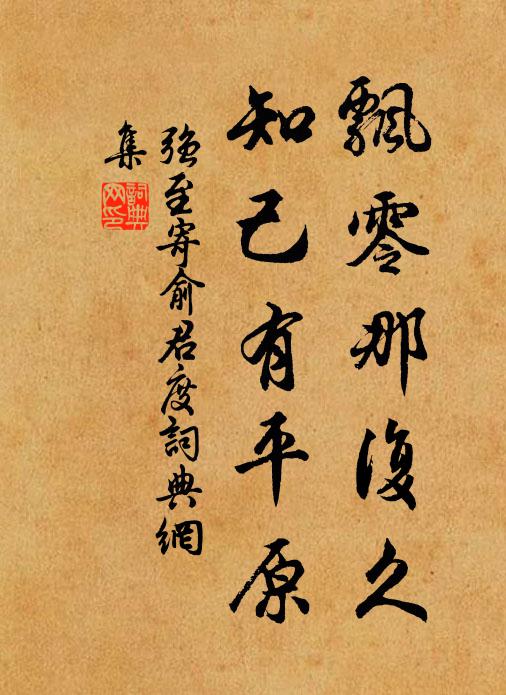 飄零那復久
知己有平原
強至寄俞君度詞典網
集
詞典
网印